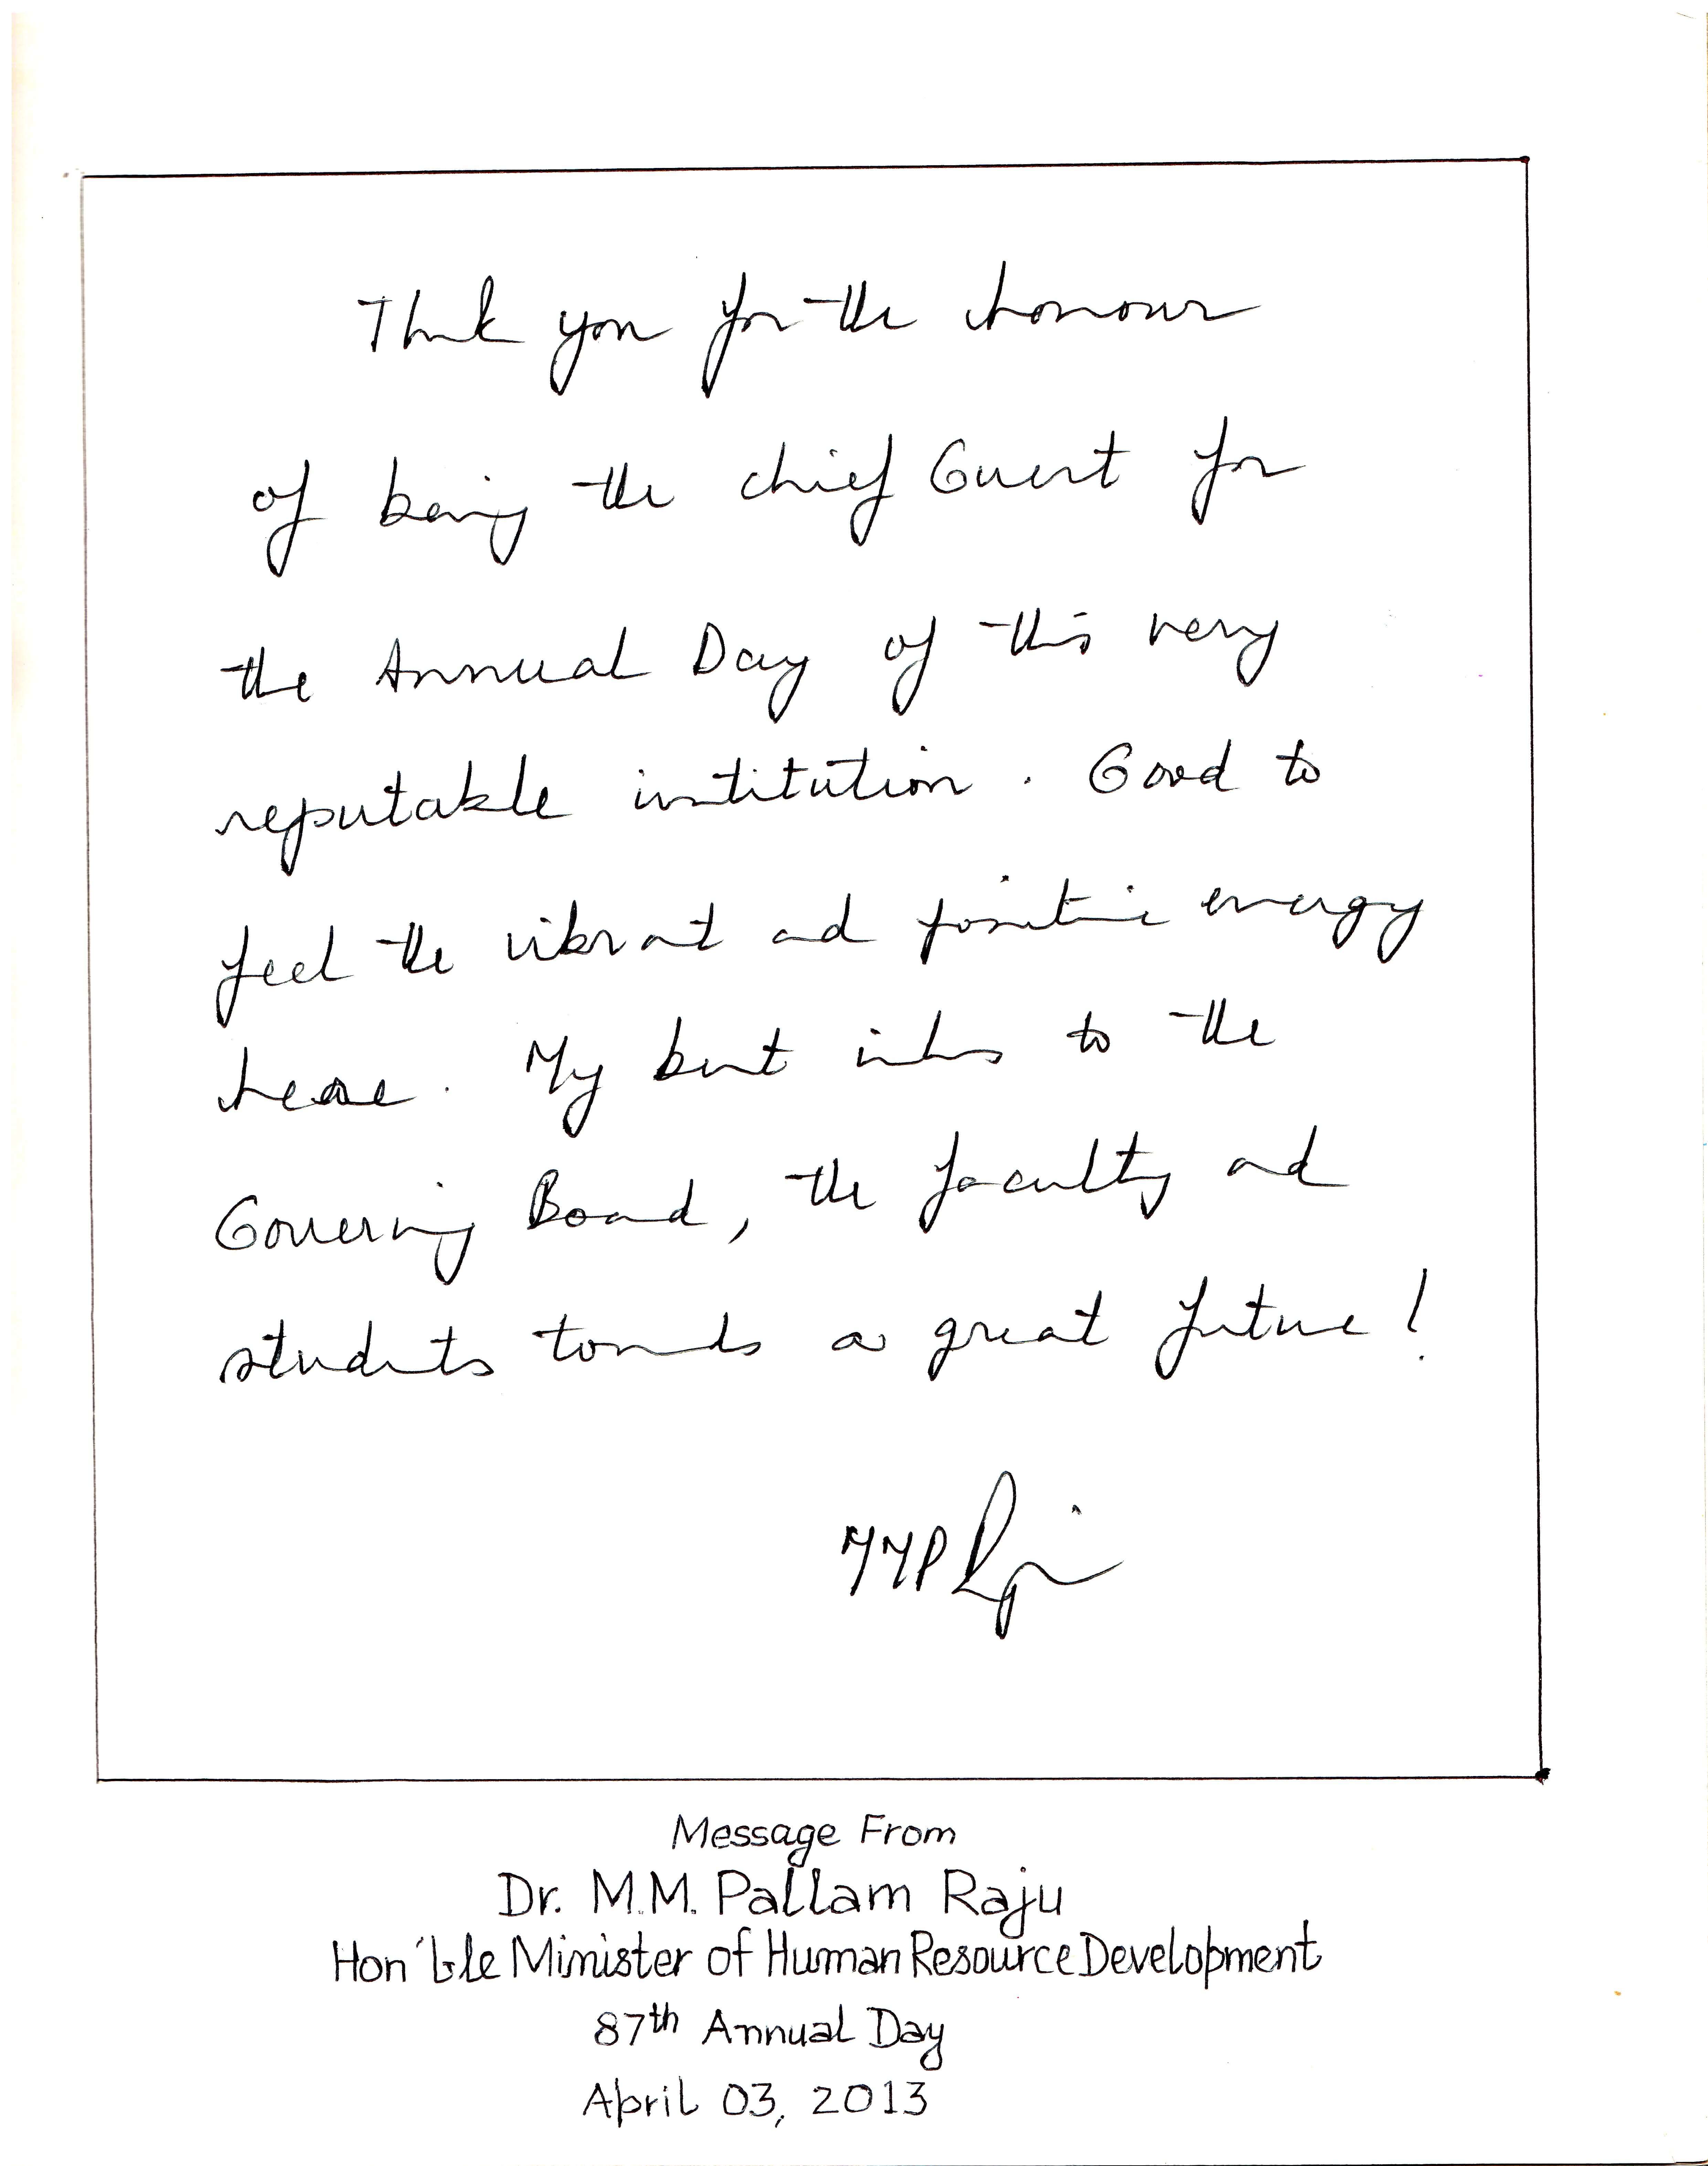 Thank you for the honour
of being the chief Guest for
the Annual Day of this very
reputable institution. Good to
feel the vibrant and positive energy
here. My best wishes to the
Governing Board, the faculty and
students towards a great future!
MMP Raju
Message From
Dr. M.M. Pallam Raju
Hon'ble Minister of Human Resource Development
87th Annual Day
April 03, 2013